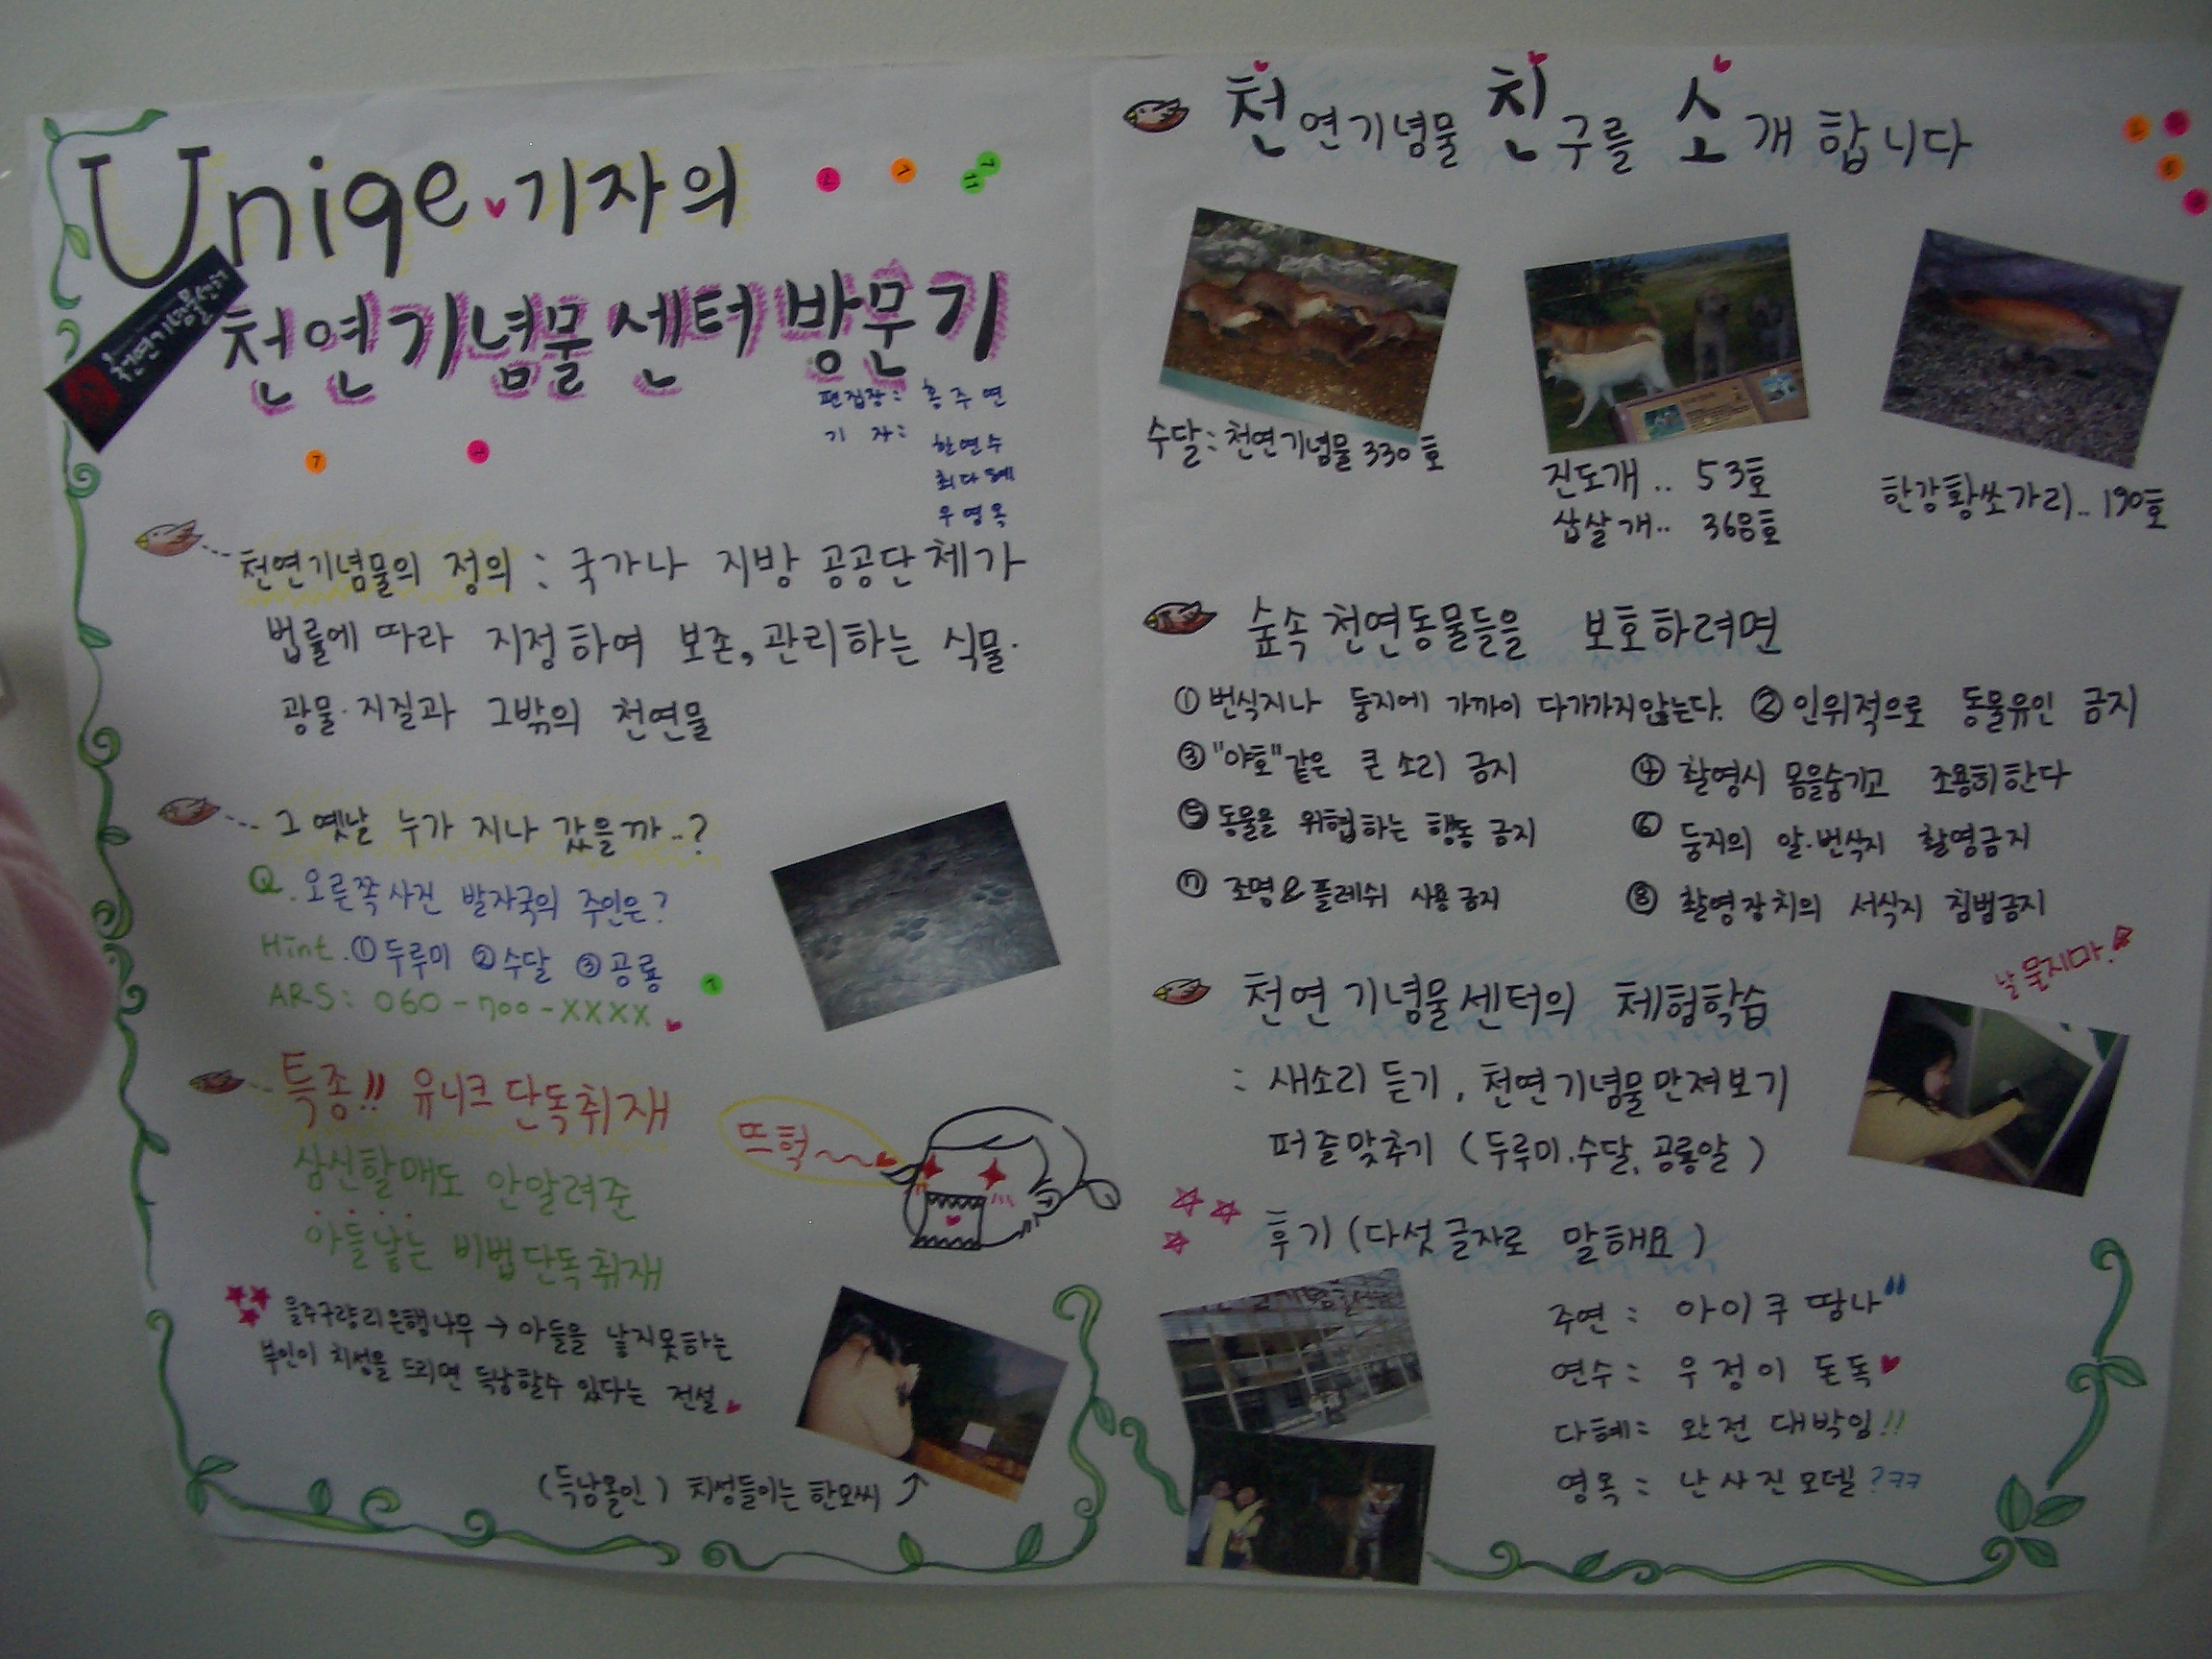 Uniqe 기자의
천연기념물센터 방문기
천연기념물센터
편집장: 홍주연
기 자:
한연수
최다혜
우영옥
천연기념물의 정의 : 국가나 지방 공공단체가
법률에 따라 지정하여 보존, 관리하는 식물·
광물·지질과 그밖의 천연물
그 옛날 누가 지나 갔을까..?
Q. 오른쪽 사진 발자국의 주인은?
Hint. ① 두루미 ② 수달 ③ 공룡
ARS: 060-700-XXXX
특종!! 유니크 단독취재
뜨헉~~
삼신할매도 안알려준
아들낳는 비법단독취재
울주구량리은행나무 → 아들을 낳지못하는
부인이 치성을 드리면 득남할수 있다는 전설
(득남올인) 치성들이는 한모씨
천연기념물 친구를 소개 합니다
수달: 천연기념물 330호
진도개.. 53호
삽살개.. 368호
한강황쏘가리.. 190호
숲속 천연동물들을 보호하려면
① 번식지나 둥지에 가까이 다가가지않는다. ② 인위적으로 동물유인 금지
③ "야호"같은 큰 소리 금지 ④ 촬영시 몸을숨기고 조용히한다
⑤ 동물을 위협하는 행동 금지 ⑥ 둥지의 알·번식지 촬영금지
⑦ 조명&플레쉬 사용금지 ⑧ 촬영장치의 서식지 침범금지
천연기념물센터의 체험학습
날 묻지마.
: 새소리 듣기, 천연기념물만져보기
퍼즐맞추기 (두루미.수달.공룡알)
후기 (다섯글자로 말해요)
주연: 아이쿠 땅나
연수: 우정이 돈독
다혜: 완전 대박잉!!
영옥: 난 사진모델?ㅋㅋ